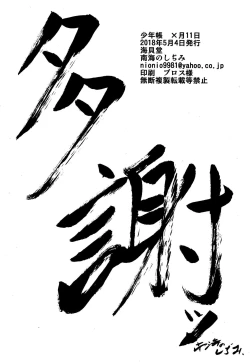 少年帳 ×月11日
2018年5月4日発行
海貝堂
南海のしぢみ
nionio9981@yahoo.co.jp
印刷 プロス様
無断複製転載等禁止
多謝ッ